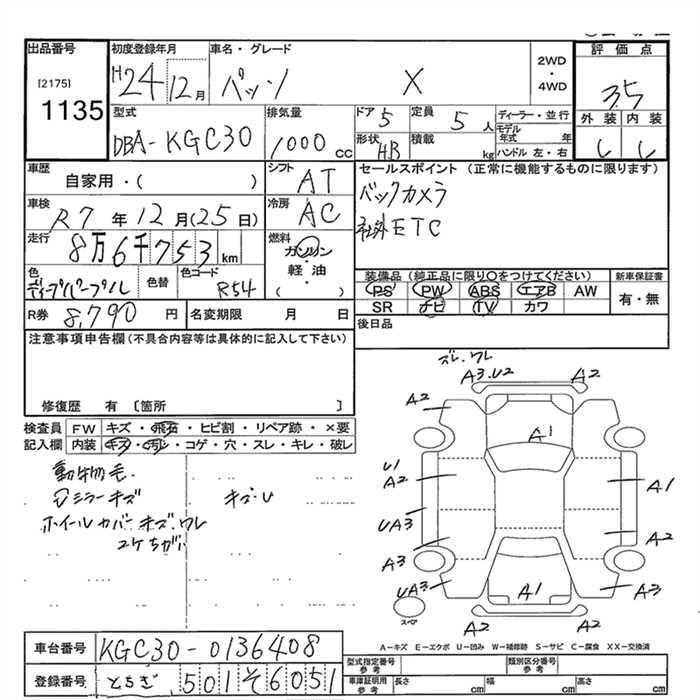 出品番号
[2175]
1135
初度登録年月
H24 12月
車名・グレード
パッソ X
2WD
・
4WD
評価点
3.5
外装 内装
型式
DBA-KGC30
排気量
1000 cc
ドア
5
定員
5人
形状
HB
積載
kg
ディーラー・並行
モデル年式 年
ハンドル 左・右
車歴
自家用・( )
シフト
AT
セールスポイント (正常に機能するものに限ります)
バックカメラ
社外ETC
車検
R7年12月(25日)
冷房
AC
走行
8万6千753km
燃料
ガソリン
・
軽・油
( )
色
ディープパープル
色替
色コード
R54
装備品 (純正品に限り○をつけてください)
PS PW ABS エアB AW
SR ナビ TV カワ
新車保証書
有・無
R券 8,790 円
名変期限 月 日
後日品
注意事項申告欄 (不具合内容等は具体的に記入して下さい)
修復歴 有 〔箇所 〕
検査員
記入欄
FW キズ・飛石・ヒビ割・リペア跡・×要
内装 キズ・汚れ・コゲ・穴・スレ・キレ・破レ
動物毛
ミラーキズ
キズ・U
ホイールカバーキズ.ワレ
コケちがい
ズレ.ワレ
A3.U2
A2
A2
A1
U1
A2
A1
UA3
A2
A3
UA3
A1
A3
スペア
A2
A2
A-キズ E-エクボ U-凹み W-補修跡 S-サビ C-腐食 XX-交換済
車台番号
KGC30-0136408
登録番号
とちぎ 501 そ 6051
型式指定番号
参考
類別区分番号
参考
車庫証明用
参考
長さ cm
幅 cm
高さ cm